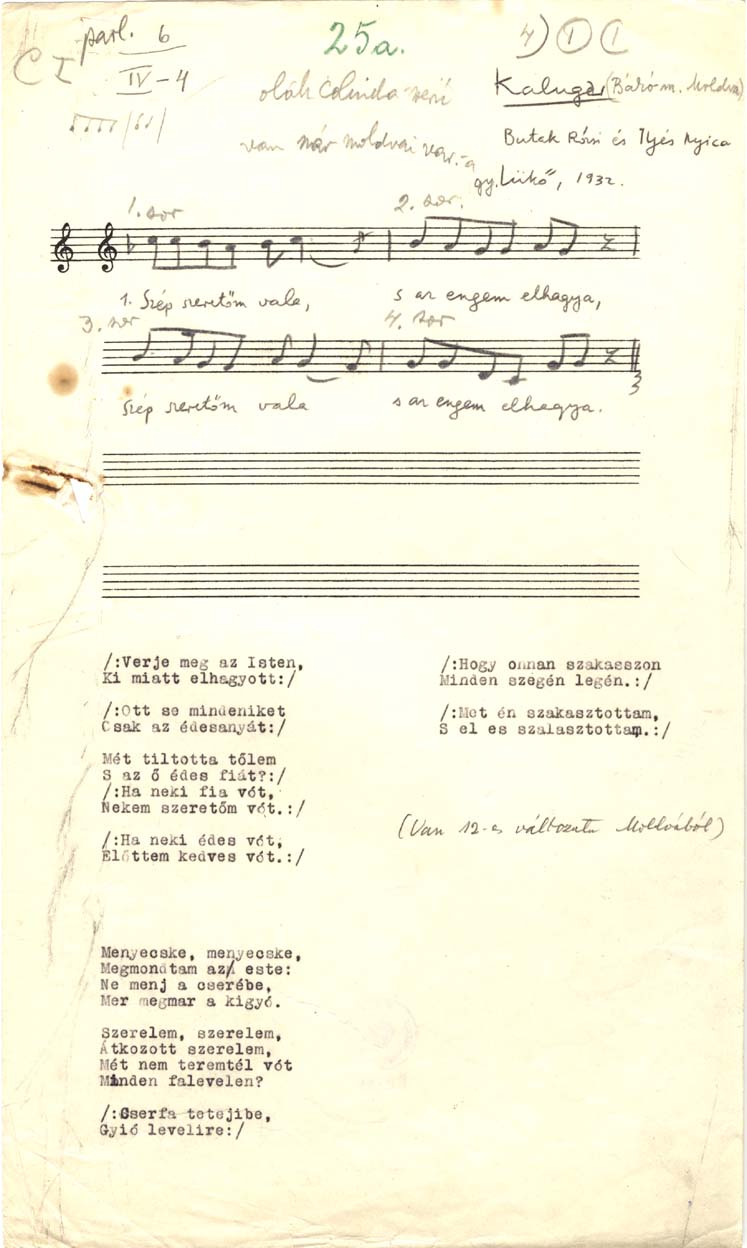 parl. 6
25a.
4) I I
C I
IV - 4
oláh colinda szerű
Kalugar (Bákó m. Moldva)
van már moldvai var.-a
Butak Rózsi és Ilyés Nyica
gy. Lükő, 1932.
1. sor
2. sor
1. Szép szeretőm vala,
s az engem elhagya,
3. sor
4. sor
szép szeretőm vala
s az engem elhagya.
/:Verje meg az Isten,
Ki miatt elhagyott:/
/:Ott se mindeniket
Csak az édesanyát:/
Mét tiltotta tőlem
S az ő édes fiát?:/
/:Ha neki fia vót,
Nekem szeretőm vót.:/
/:Ha neki édes vót,
Előttem kedves vót.:/
Menyecske, menyecske,
Megmondtam az este:
Ne menj a cserébe,
Mer megmar a kigyó.
Szerelem, szerelem,
Átkozott szerelem,
Mét nem teremtél vót
Minden falevelen?
/:Cserfa tetejibe,
Gyió levelire:/
/:Hogy onnan szakasszon
Minden szegén legén.:/
/:Met én szakasztottam,
S el es szalasztottam.:/
(Van 12-es változata Moldvából)